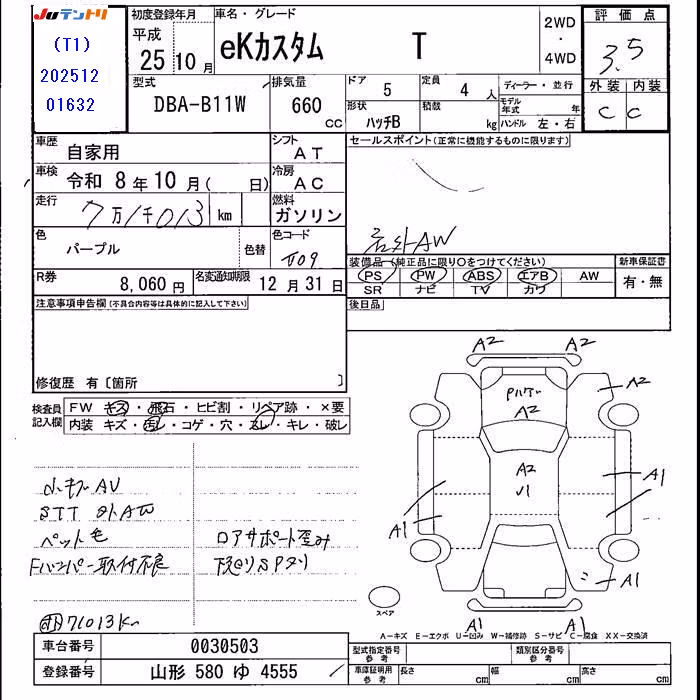 JUテントリ
(T1)
202512
01632
初度登録年月
平成
25 10 月
車名・グレード
eKカスタム T
2WD
・
4WD
評価点
3.5
外装 内装
C C
型式
DBA-B11W
排気量
660 CC
ドア
5
定員
4 人
ディーラー・並行
形状
ハッチB
積載
kg
モデル年式 年
ハンドル 左・右
車歴
自家用
シフト
AT
車検
令和 8 年 10 月 ( 日)
冷房
AC
走行
7万1千013 km
燃料
ガソリン
色
パープル
色替
色コード
T09
R券
8,060 円
名変通知期限
12 月 31 日
セールスポイント(正常に機能するものに限ります)
社外AW
装備品(純正品に限り○をつけてください)
新車保証書
PS PW ABS エアB AW
SR ナビ TV カワ
有・無
後日品
注意事項申告欄(不具合内容等は具体的に記入して下さい)
修復歴 有〔箇所 〕
検査員記入欄
FW キズ・飛石・ヒビ割・リペア跡・×要
内装 キズ・汚レ・コゲ・穴・スレ・キレ・破レ
STT 外AW
ペット毛
Fバンパー取付不良
ロアサポート歪み
下廻りSP刈
71013K
A2 A2
A2
A2
A2
√1
A1
A1
A1
A1
A1 A1
スペア
A-キズ E-エクボ U-凹み W-補修跡 S-サビ C-腐食 XX-交換済
車台番号 0030503
登録番号 山形 580 ゆ 4555
型式指定番号 参考
類別区分番号 参考
車庫証明用 参考
長さ cm 幅 cm 高さ cm